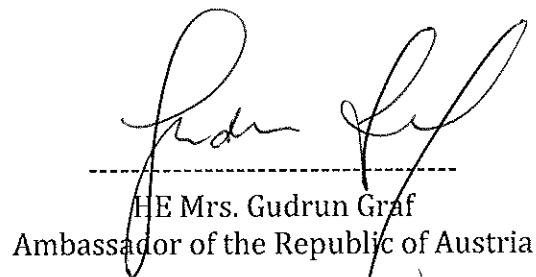 HE Mrs. Gudrun Graf
Ambassador of the Republic of Austria